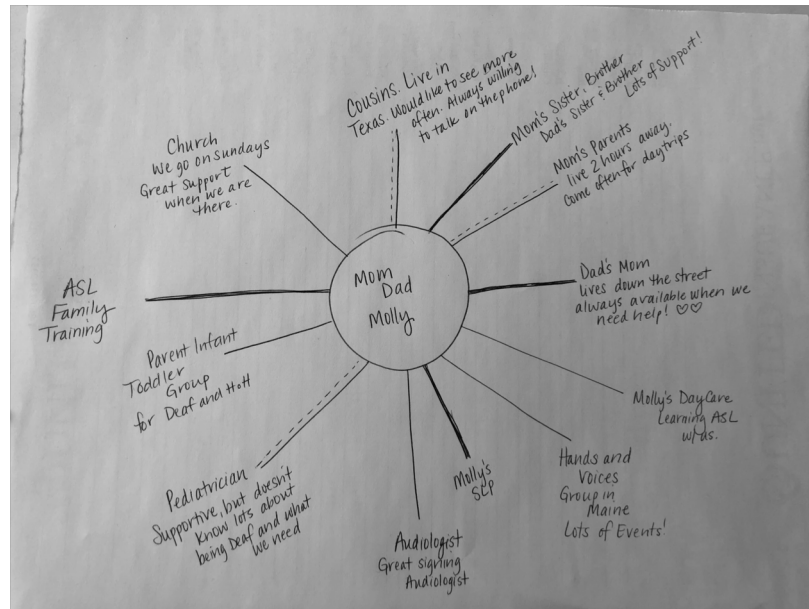 Mom
Dad
Molly
Cousins. Live in
Texas. Would like to see more
often. Always willing
to talk on the phone!
Mom's Sister, Brother
Dad's Sister & Brother
Lots of Support!
Mom's Parents
live 2 hours away.
Come often for daytrips
Dad's Mom
lives down the street
always available when we
need help! ♡♡
Molly's DayCare
Learning ASL
w/us.
Hands and
Voices
Group in
Maine
Lots of Events!
Molly's
SLP
Audiologist
Great signing
Audiologist
Pediatrician
Supportive, but doesn't
know lots about
being Deaf and what
we need
Parent Infant
Toddler
Group
for Deaf and HoH
ASL
Family
Training
Church
We go on Sundays
Great Support
when we are
there.